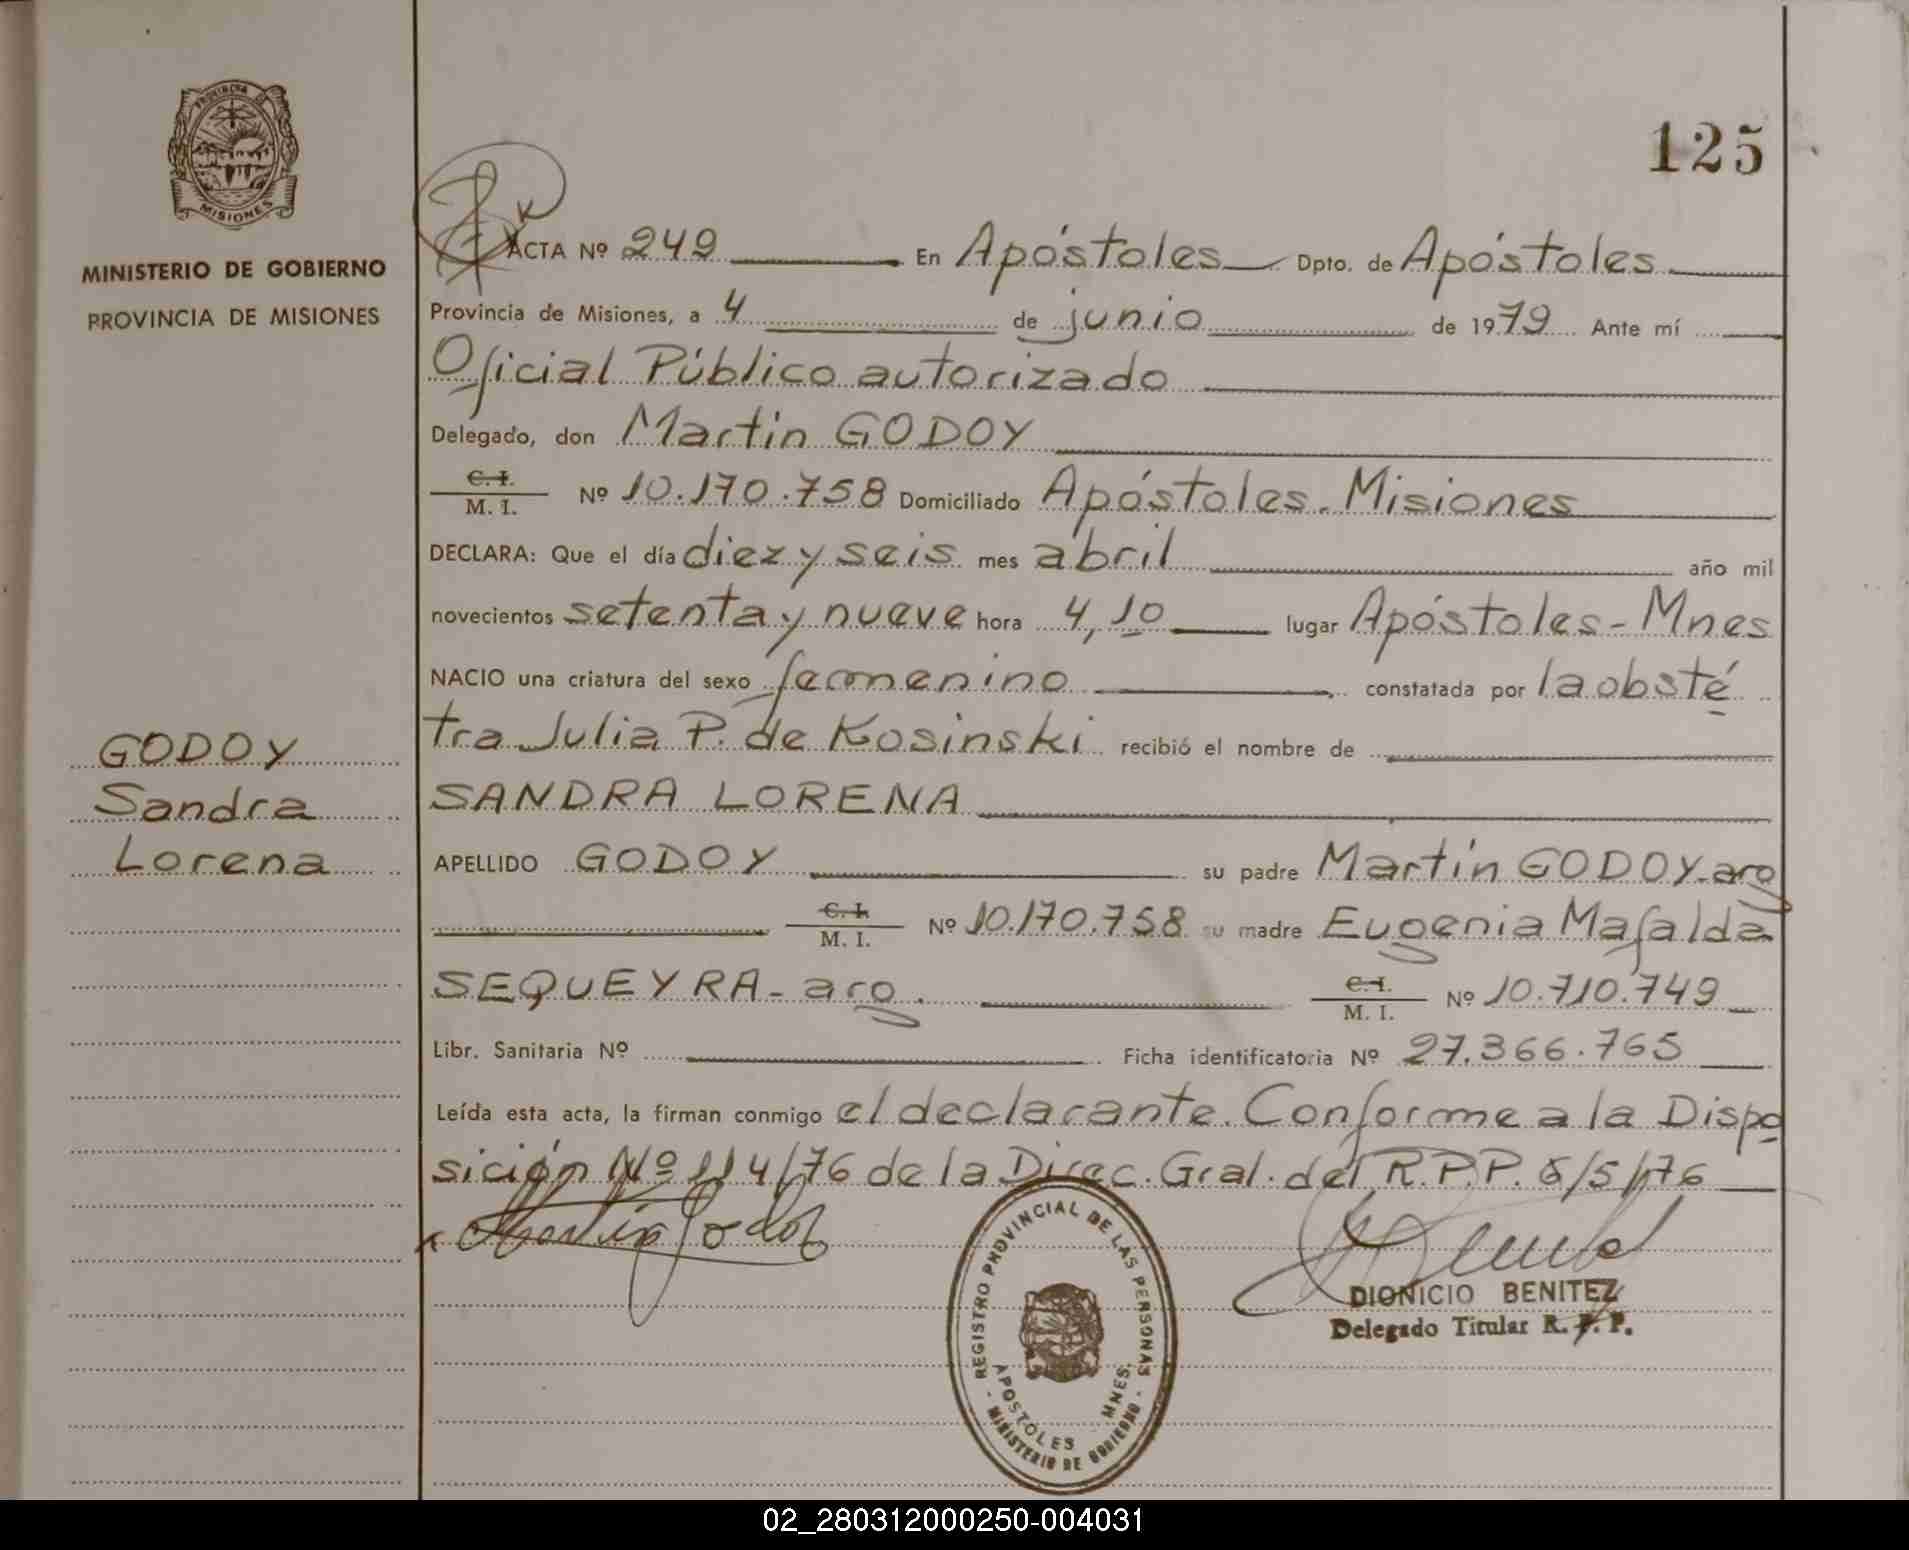 PROVINCIA DE
MISIONES
MINISTERIO DE GOBIERNO
PROVINCIA DE MISIONES
125
ACTA Nº 249 En Apóstoles Dpto. de Apóstoles
Provincia de Misiones, a 4 de junio de 1979 Ante mí
Oficial Público autorizado
Delegado, don Martín GODOY
C. I.
M. I. Nº 10.170.758 Domiciliado Apóstoles. Misiones
DECLARA: Que el día diez y seis mes abril año mil
novecientos setenta y nueve hora 4,10 lugar Apóstoles - Mnes
NACIO una criatura del sexo femenino constatada por la obsté
tra Julia P. de Kosinski recibió el nombre de
SANDRA LORENA
APELLIDO GODOY su padre Martín GODOY-arg
C. I.
M. I. Nº 10.170.758 su madre Eugenia Mafalda
SEQUEYRA - arg. C. I.
M. I. Nº 10.710.749
Libr. Sanitaria Nº Ficha identificatoria Nº 27.366.765
Leída esta acta, la firman conmigo el declarante. Conforme a la Dispo
sición Nº 114/76 de la Direc. Gral. del R.P.P. 6/5/76
GODOY
Sandra
Lorena
Martin Godoy
REGISTRO PROVINCIAL DE LAS PERSONAS
APOSTOLES MNES.
- MINISTERIO DE GOBIERNO -
DIONICIO BENITEZ
Delegado Titular R. P. P.
02_280312000250-004031